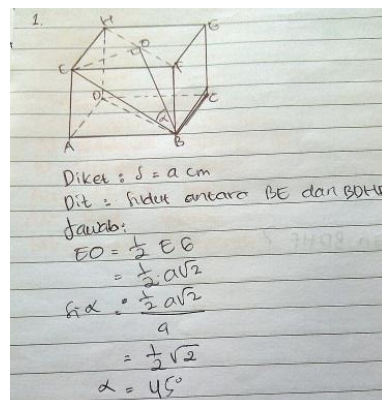 1.
H G
O
E F
D C
α
A B
Diket : S = a cm
Dit : Sudut antara BE dan BDHF
Jawab:
EO = 1/2 EG
= 1/2 . a√2
Sin α = 1/2 a√2 / a
= 1/2 √2
α = 45°